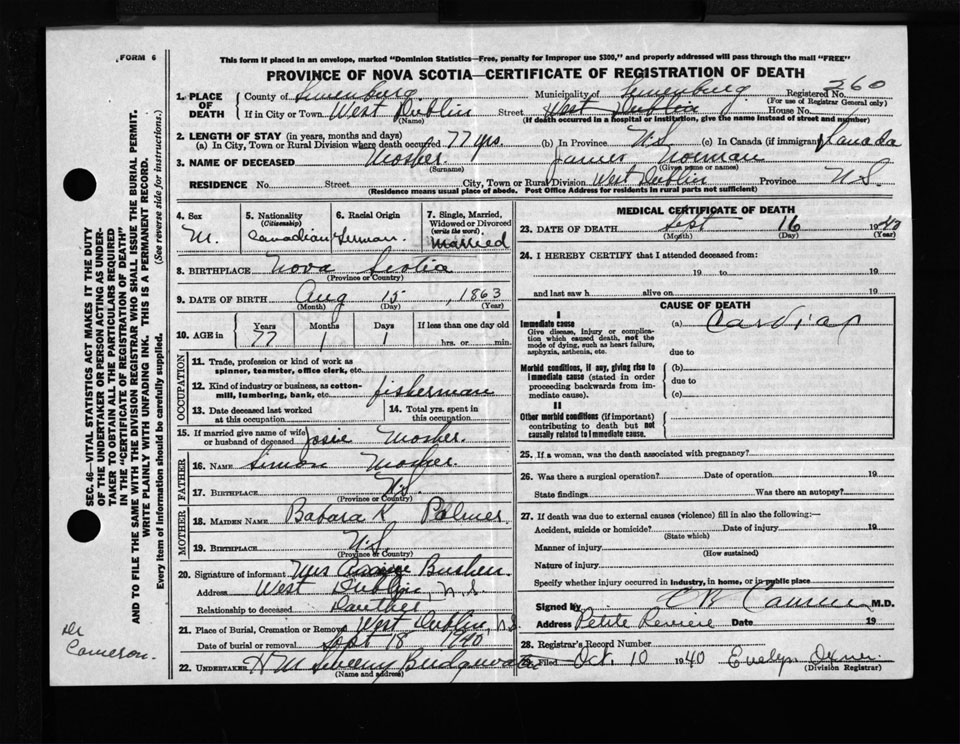 FORM 6
This form if placed in an envelope, marked "Dominion Statistics—Free, penalty for improper use $300," and properly addressed will pass through the mail "FREE"
PROVINCE OF NOVA SCOTIA—CERTIFICATE OF REGISTRATION OF DEATH
1. PLACE OF DEATH
County of Lunenburg Municipality of Lunenburg Registered No. 260
(For use of Registrar General only)
If in City or Town West Dublin Street West Dublin House No.
(Name) (If death occurred in a hospital or institution, give the name instead of street and number)
2. LENGTH OF STAY (in years, months and days)
(a) In City, Town or Rural Division where death occurred 77 yrs. (b) In Province N.S. (c) In Canada (if immigrant) Canada
3. NAME OF DECEASED Mosher. James Norman
(Surname) (Given name or names)
RESIDENCE No. Street City, Town or Rural Division West Dublin Province N.S.
(Residence means usual place of abode. Post Office Address for residents in rural parts not sufficient)
4. Sex
M.
5. Nationality
(Citizenship)
Canadian
6. Racial Origin
German.
7. Single, Married, Widowed or Divorced
(write the word)
Married
8. BIRTHPLACE Nova Scotia
(Province or Country)
9. DATE OF BIRTH Aug 15, 1863
(Month) (Day) (Year)
10. AGE in Years Months Days If less than one day old
77 1 1 hrs. or min.
OCCUPATION
11. Trade, profession or kind of work as
spinner, teamster, office clerk, etc.
12. Kind of industry or business, as cotton-
mill, lumbering, bank, etc. fisherman
13. Date deceased last worked
at this occupation
14. Total yrs. spent in
this occupation
15. If married give name of wife
or husband of deceased Josie Mosher.
FATHER
16. NAME Simon Mosher.
17. BIRTHPLACE N.S.
(Province or Country)
MOTHER
18. MAIDEN NAME Babara K Palmer
19. BIRTHPLACE N.S.
(Province or Country)
20. Signature of informant Mrs Bushen
Address West Dublin, N.S.
Relationship to deceased Dauther
21. Place of Burial, Cremation or Removal West Dublin, N.S.
Date of burial or removal Sept 18 1940
22. UNDERTAKER H M Sweeny Bridgewater
(Name and address)
MEDICAL CERTIFICATE OF DEATH
23. DATE OF DEATH Sept 16 1940
(Month) (Day) (Year)
24. I HEREBY CERTIFY that I attended deceased from:
19 to 19
and last saw h alive on 19
CAUSE OF DEATH
I
Immediate cause
Give disease, injury or complica-
tion which caused death, not the
mode of dying, such as heart failure,
asphyxia, asthenia, etc.
(a)
due to
Morbid conditions, if any, giving rise to
immediate cause (stated in order
proceeding backwards from im-
mediate cause).
(b)
due to
(c)
II
Other morbid conditions (if important)
contributing to death but not
causally related to immediate cause.
25. If a woman, was the death associated with pregnancy?
26. Was there a surgical operation? Date of operation 19
State findings Was there an autopsy?
27. If death was due to external causes (violence) fill in also the following:—
Accident, suicide or homicide? Date of injury 19
(State which)
Manner of injury
(How sustained)
Nature of injury
Specify whether injury occurred in industry, in home, or in public place
Signed by M.D.
Address Petite Riviere Date 19
28. Registrar's Record Number
29. Filed Oct. 10 1940 Evelyn
(Division Registrar)
SEC. 46—VITAL STATISTICS ACT MAKES IT THE DUTY
OF THE UNDERTAKER OR PERSON ACTING AS UNDER-
TAKER TO OBTAIN ALL THE PARTICULARS REQUIRED
IN THE "CERTIFICATE OF REGISTRATION OF DEATH"
AND TO FILE THE SAME WITH THE DIVISION REGISTRAR WHO SHALL ISSUE THE BURIAL PERMIT.
WRITE PLAINLY WITH UNFADING INK. THIS IS A PERMANENT RECORD.
Every item of information should be carefully supplied. (See reverse side for instructions.)
Dr
Cameron.